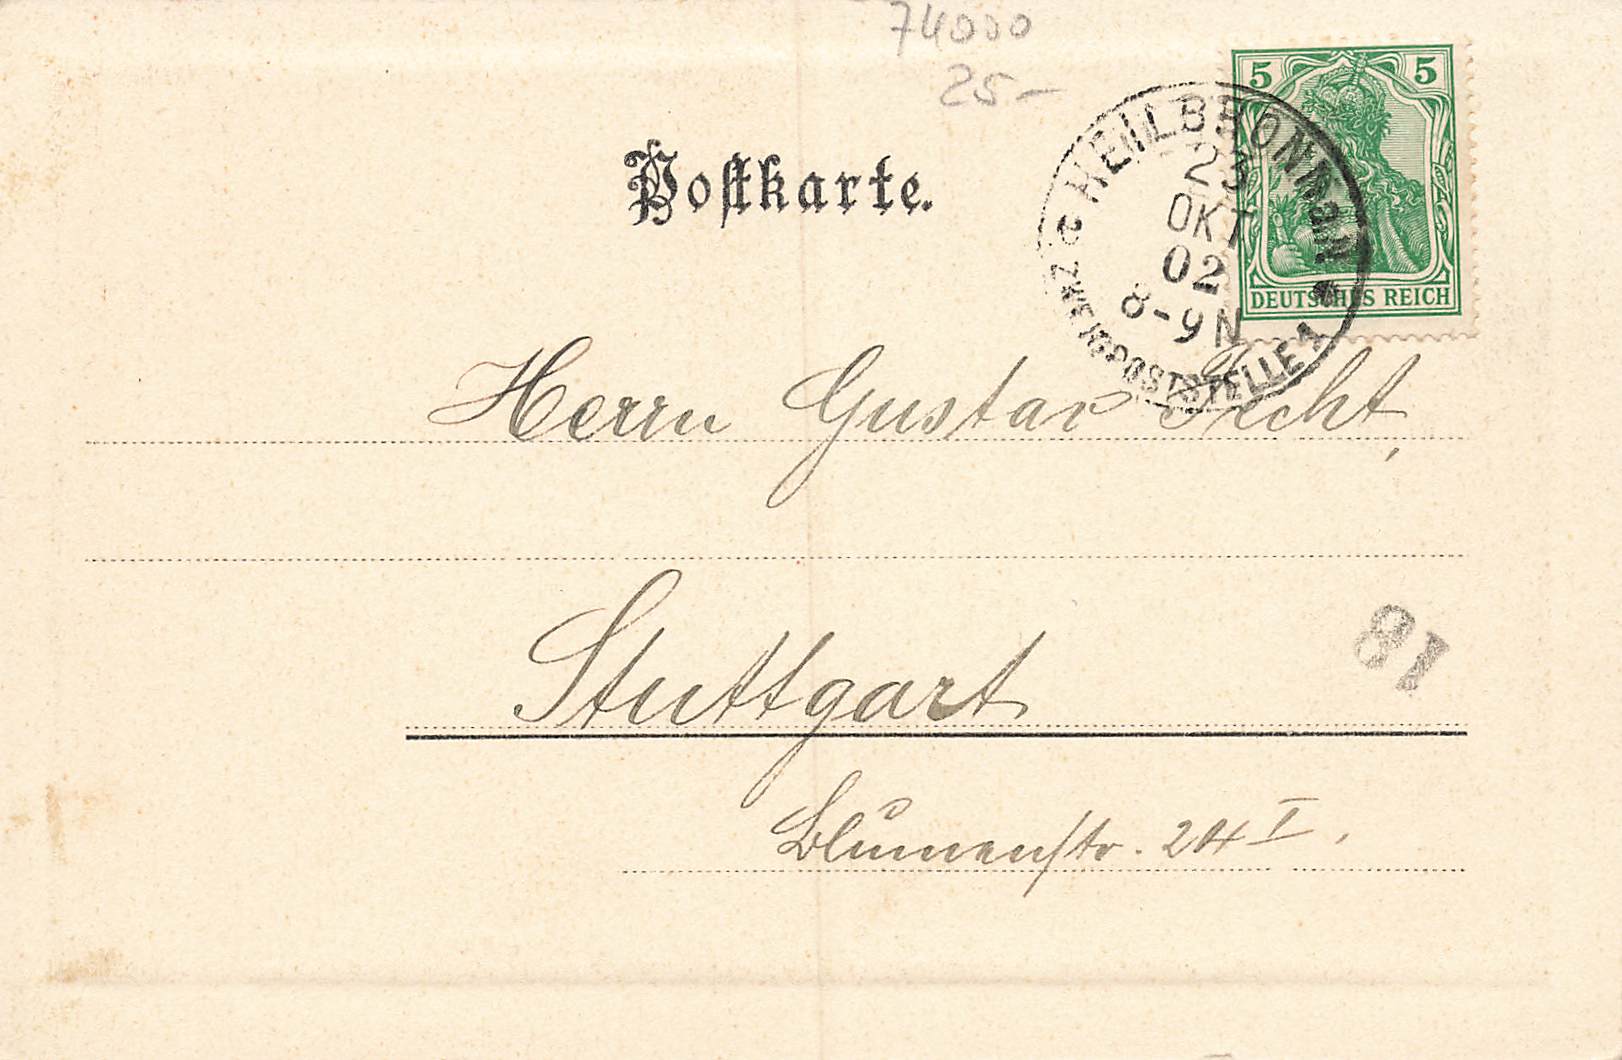 74000
25-
5 5
DEUTSCHES REICH
HEILBRONN
23
OKT
02
8-9N
POSTSTELLE 1
Postkarte.
Herrn Gustav Fecht,
Stuttgart
81
Blumenstr. 24 I.